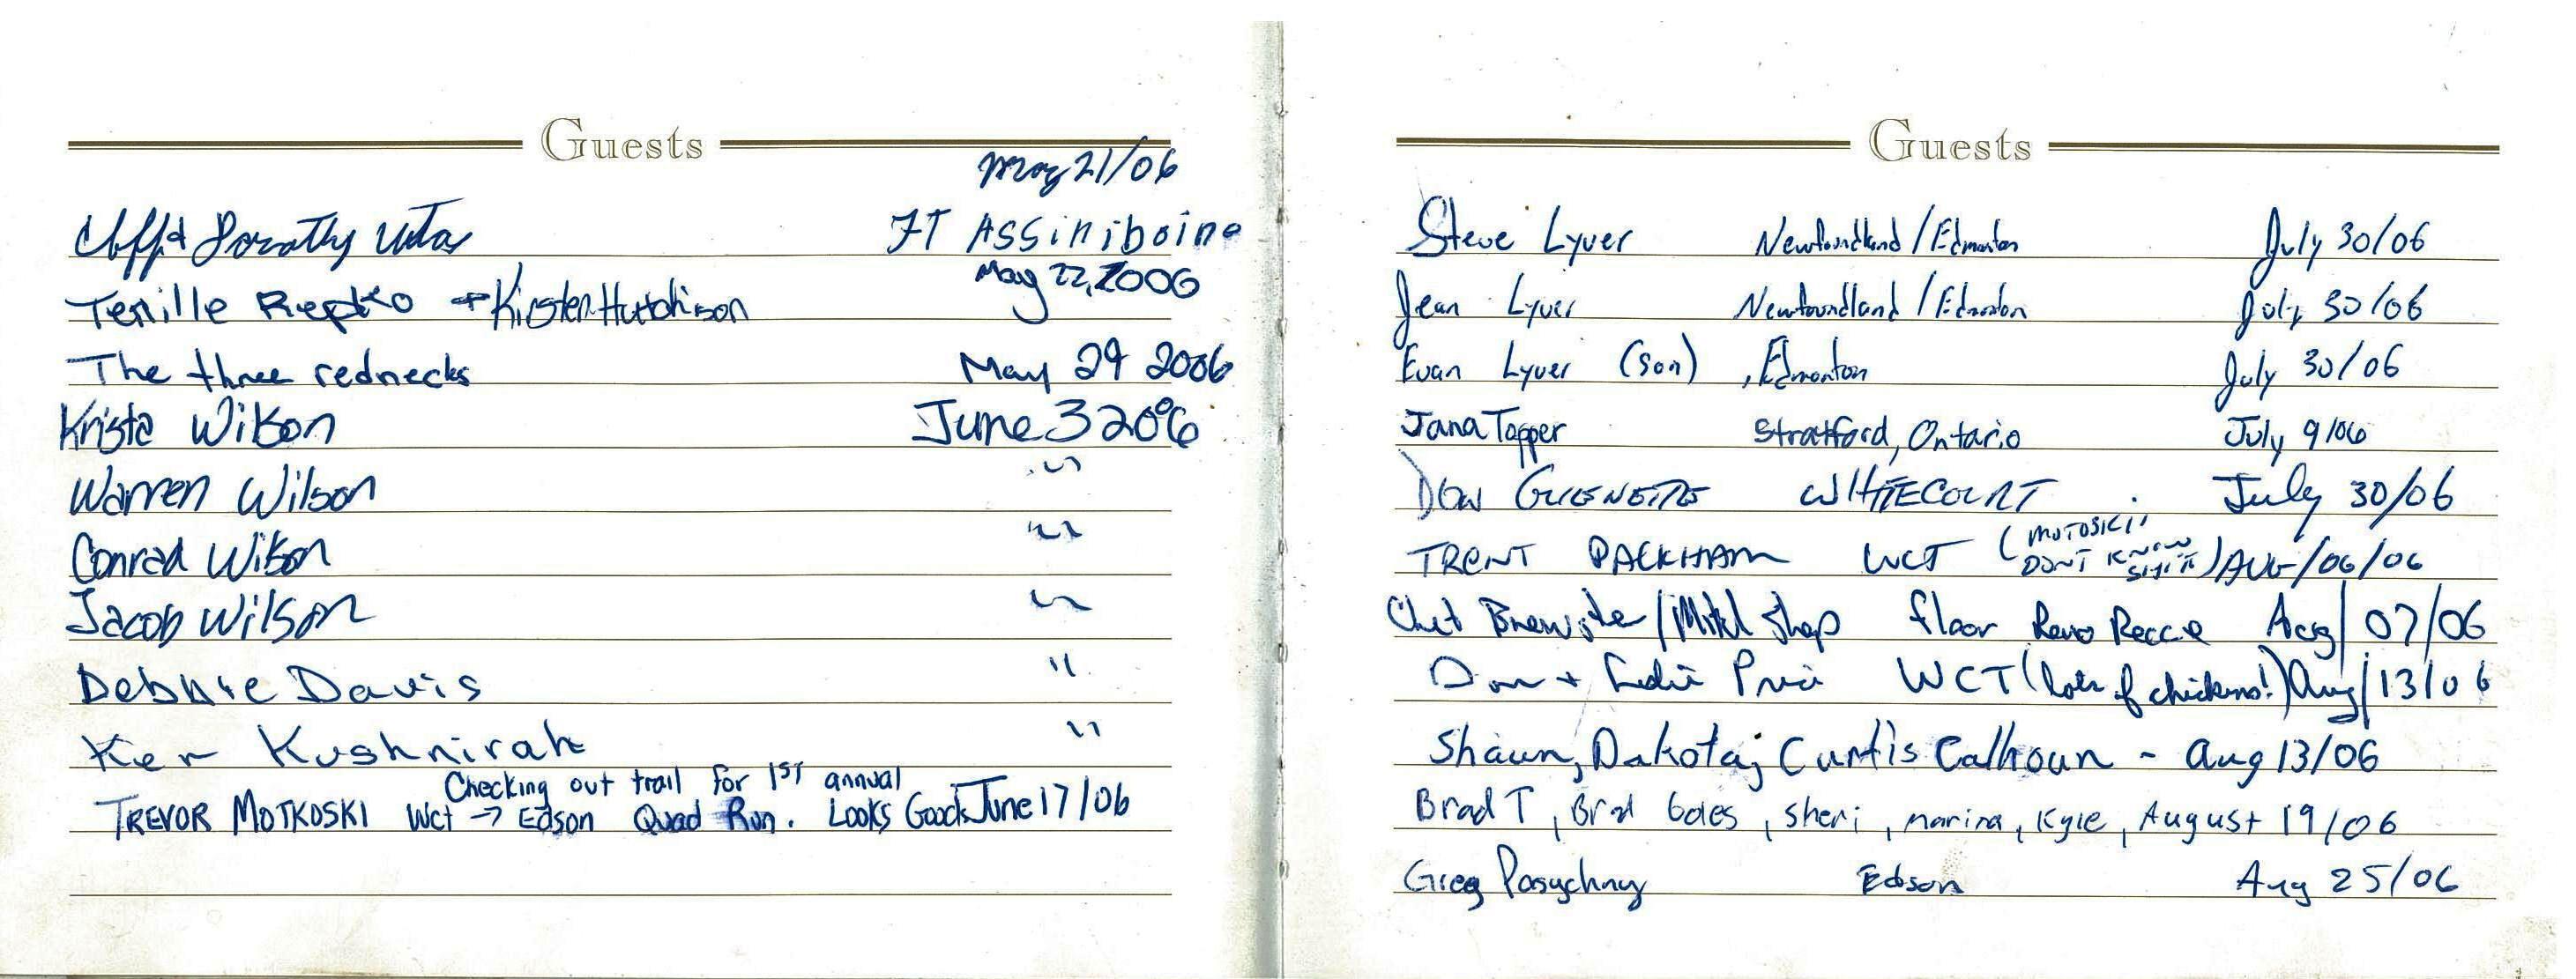 Guests
May 21/06
Cliff & Dorothy FT ASSiniboine
May 22, 2006
Tenille Repko + Kirsten Hutchison
The three rednecks May 29 2006
Krista Wilson June 3 2006
Warren Wilson "
Conrad Wilson "
Jacob Wilson "
Debbie Davis "
Ken Kushnirak "
Checking out trail for 1ST annual
TREVOR MOTKOSKI Wct → Edson Quad Run. Looks Good. June 17/06
Guests
Steve Lyver Newfoundland/Edmonton July 30/06
Jean Lyver Newfoundland/Edmonton July 30/06
Evan Lyver (son), Edmonton July 30/06
Jana Topper Stratford, Ontario July 9/06
DON GUENETTE WHITECOURT July 30/06
TRENT PACKHAM WCT (MOTOSKI'S DONT KNOW SHIT) AUG/06/06
Chet Brewster/Mitch Shap floor Reno Reccie Aug/07/06
Don + Price WCT (lots of chickens!) Aug/13/06
Shaun, Dakota, Curtis Calhoun - Aug 13/06
Brad T, Brad Boles, Sheri, marina, Kyle, August 19/06
Greg Pasychny Edson Aug 25/06